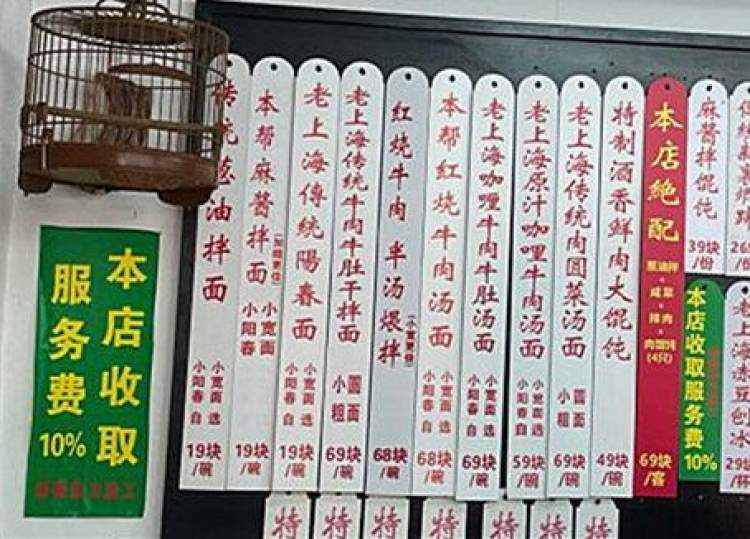 本店收取
服务费
10%
传统葱油拌面
小宽面选
小阳春自
19块/碗
本帮麻酱拌面
小宽面
小阳春
19块/碗
老上海傳統陽春面
小宽面选
小阳春自
19块/碗
老上海传统牛肉牛肚干拌面
小圆面
粗
69块/碗
红烧牛肉半汤煨拌
68块/碗
本帮红烧牛肉汤面
小宽面选
小阳春自
68块/碗
老上海咖喱牛肉牛肚汤面
小宽面选
小阳春自
69块/碗
老上海原汁咖喱牛肉汤面
小宽面选
小阳春自
59块/碗
老上海传统肉圆菜汤面
小圆面
粗
69块/碗
特制酒香鲜肉大馄饨
49块/碗
本店絶配
葱油拌
+
咸菜
+
辣肉
+
肉馄饨
(4只)
69块/客
麻酱拌馄饨
39块/份
本店收取服务费
10%
老上海赤豆刨冰
29块/杯
特
特
特
特
特
特
特